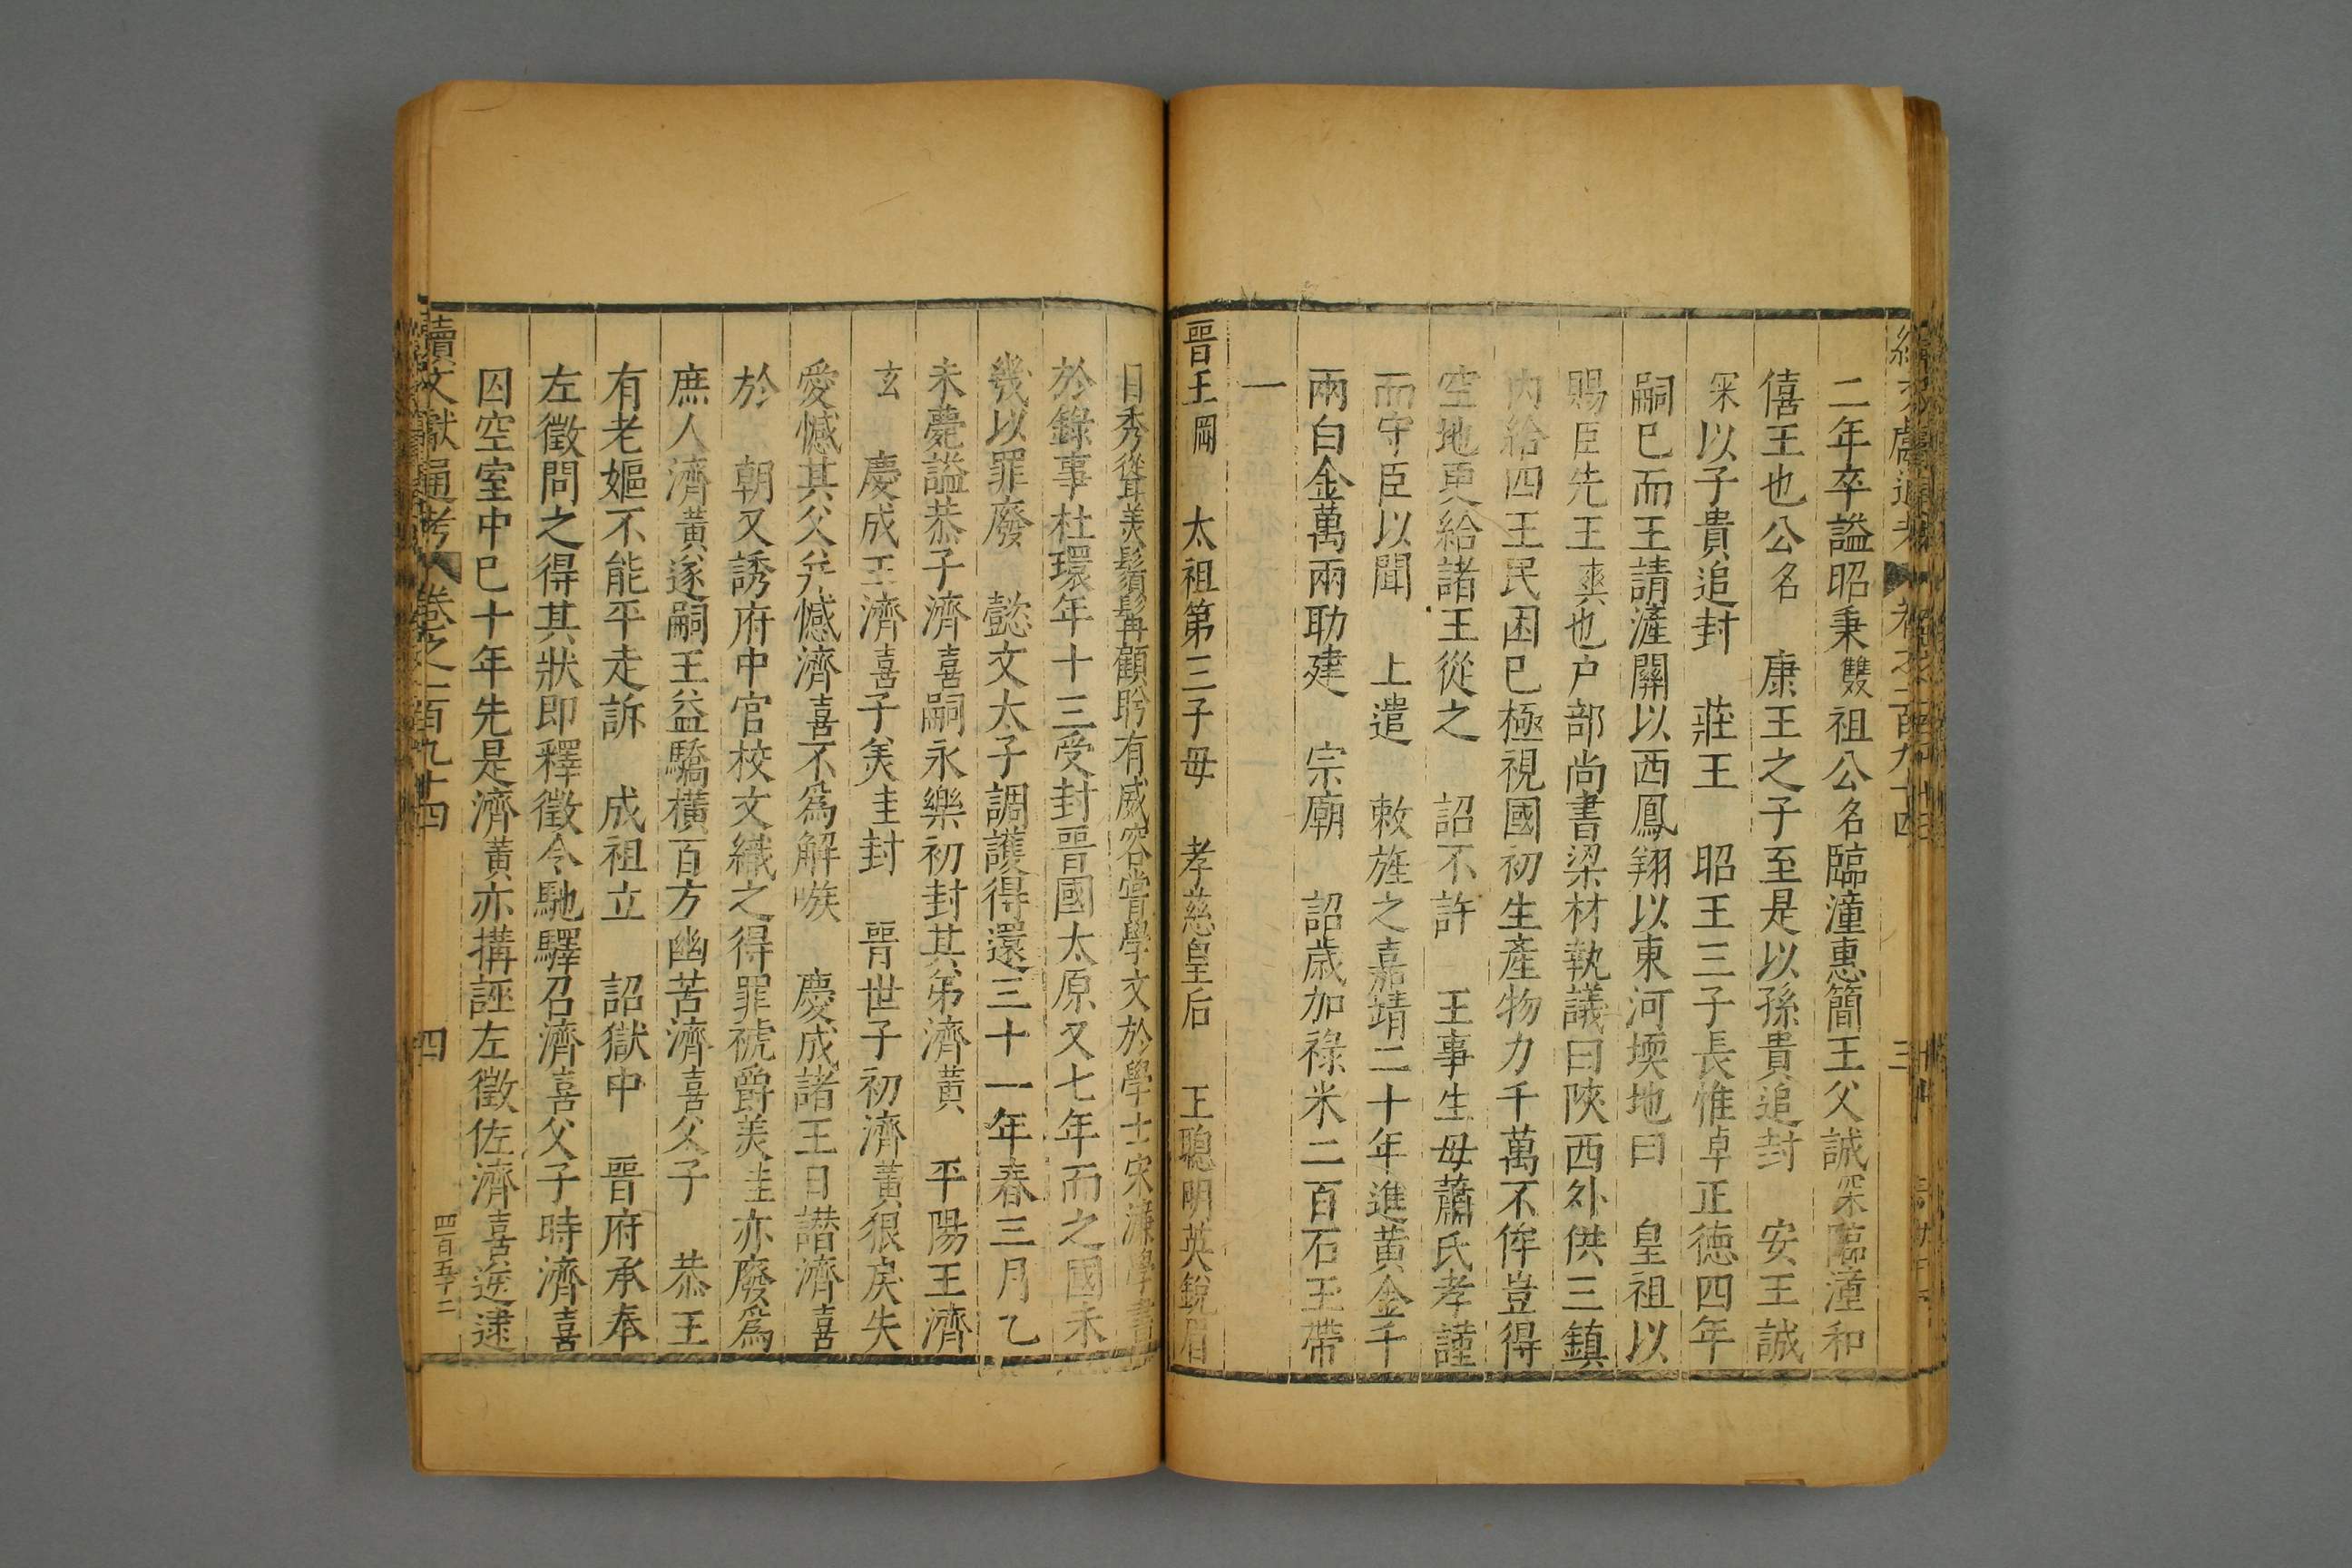 二年卒謚昭秉雙祖公名臨潼惠簡王父誠渁臨潼和
僖王也公名 康王之子至是以孫貴追封 安王誠
渁以子貴追封 莊王 昭王三子長惟焯正德四年
嗣已而王請滻關以西鳳翔以東河堧地曰 皇祖以
賜臣先王爽也户部尚書梁材執議曰陝西外供三鎮
內給四王民困已極視國初生產物力千萬不侔豈得
空地更給諸王從之 詔不許 王事生母蕭氏孝謹
而守臣以聞 上遣 敕旌之嘉靖二十年進黃金千
兩白金萬兩助建 宗廟 詔歲加祿米二百石玉帶
一
晉王棡 太祖第三子母 孝慈皇后 王聰明英銳眉
目秀聳美鬚髯顧盼有威容嘗學文於學士宋濂學書
於錄事杜環年十三受封晉國太原又七年而之國未
幾以罪廢 懿文太子調護得還三十一年春三月乙
未薨謚恭子濟熺嗣永樂初封其弟濟熿 平陽王濟
炫 慶成王濟熺子美圭封 晉世子初濟熿狠戾失
愛憾其父并憾濟熺不為解嗾 慶成諸王日譖濟熺
於 朝又誘府中官校文織之得罪褫爵美圭亦廢為
庶人濟熿遂嗣王益驕橫百方幽苦濟熺父子 恭王
有老嫗不能平走訴 成祖立 詔獄中 晉府承奉
左徵問之得其狀即釋徵令馳驛召濟熺父子時濟熺
囚空室中已十年先是濟熿亦搆誣左徵佐濟熺逆逮
續文獻通考 卷之一百九十四 四 四百五十二